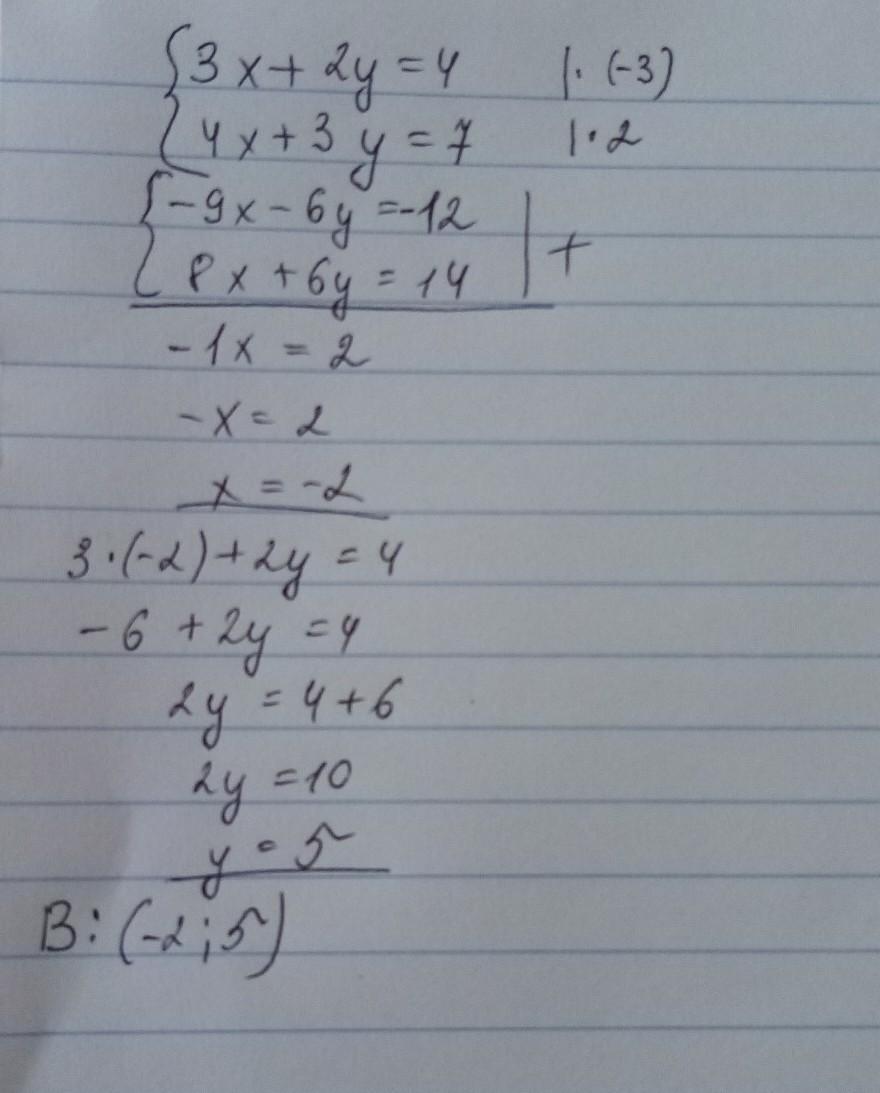 {3x + 2y = 4 |· (-3)
{4x + 3y = 7 |· 2
{-9x - 6y = -12 | +
{8x + 6y = 14
-1x = 2
-x = 2
x = -2
3·(-2) + 2y = 4
-6 + 2y = 4
2y = 4 + 6
2y = 10
y = 5
В: (-2; 5)